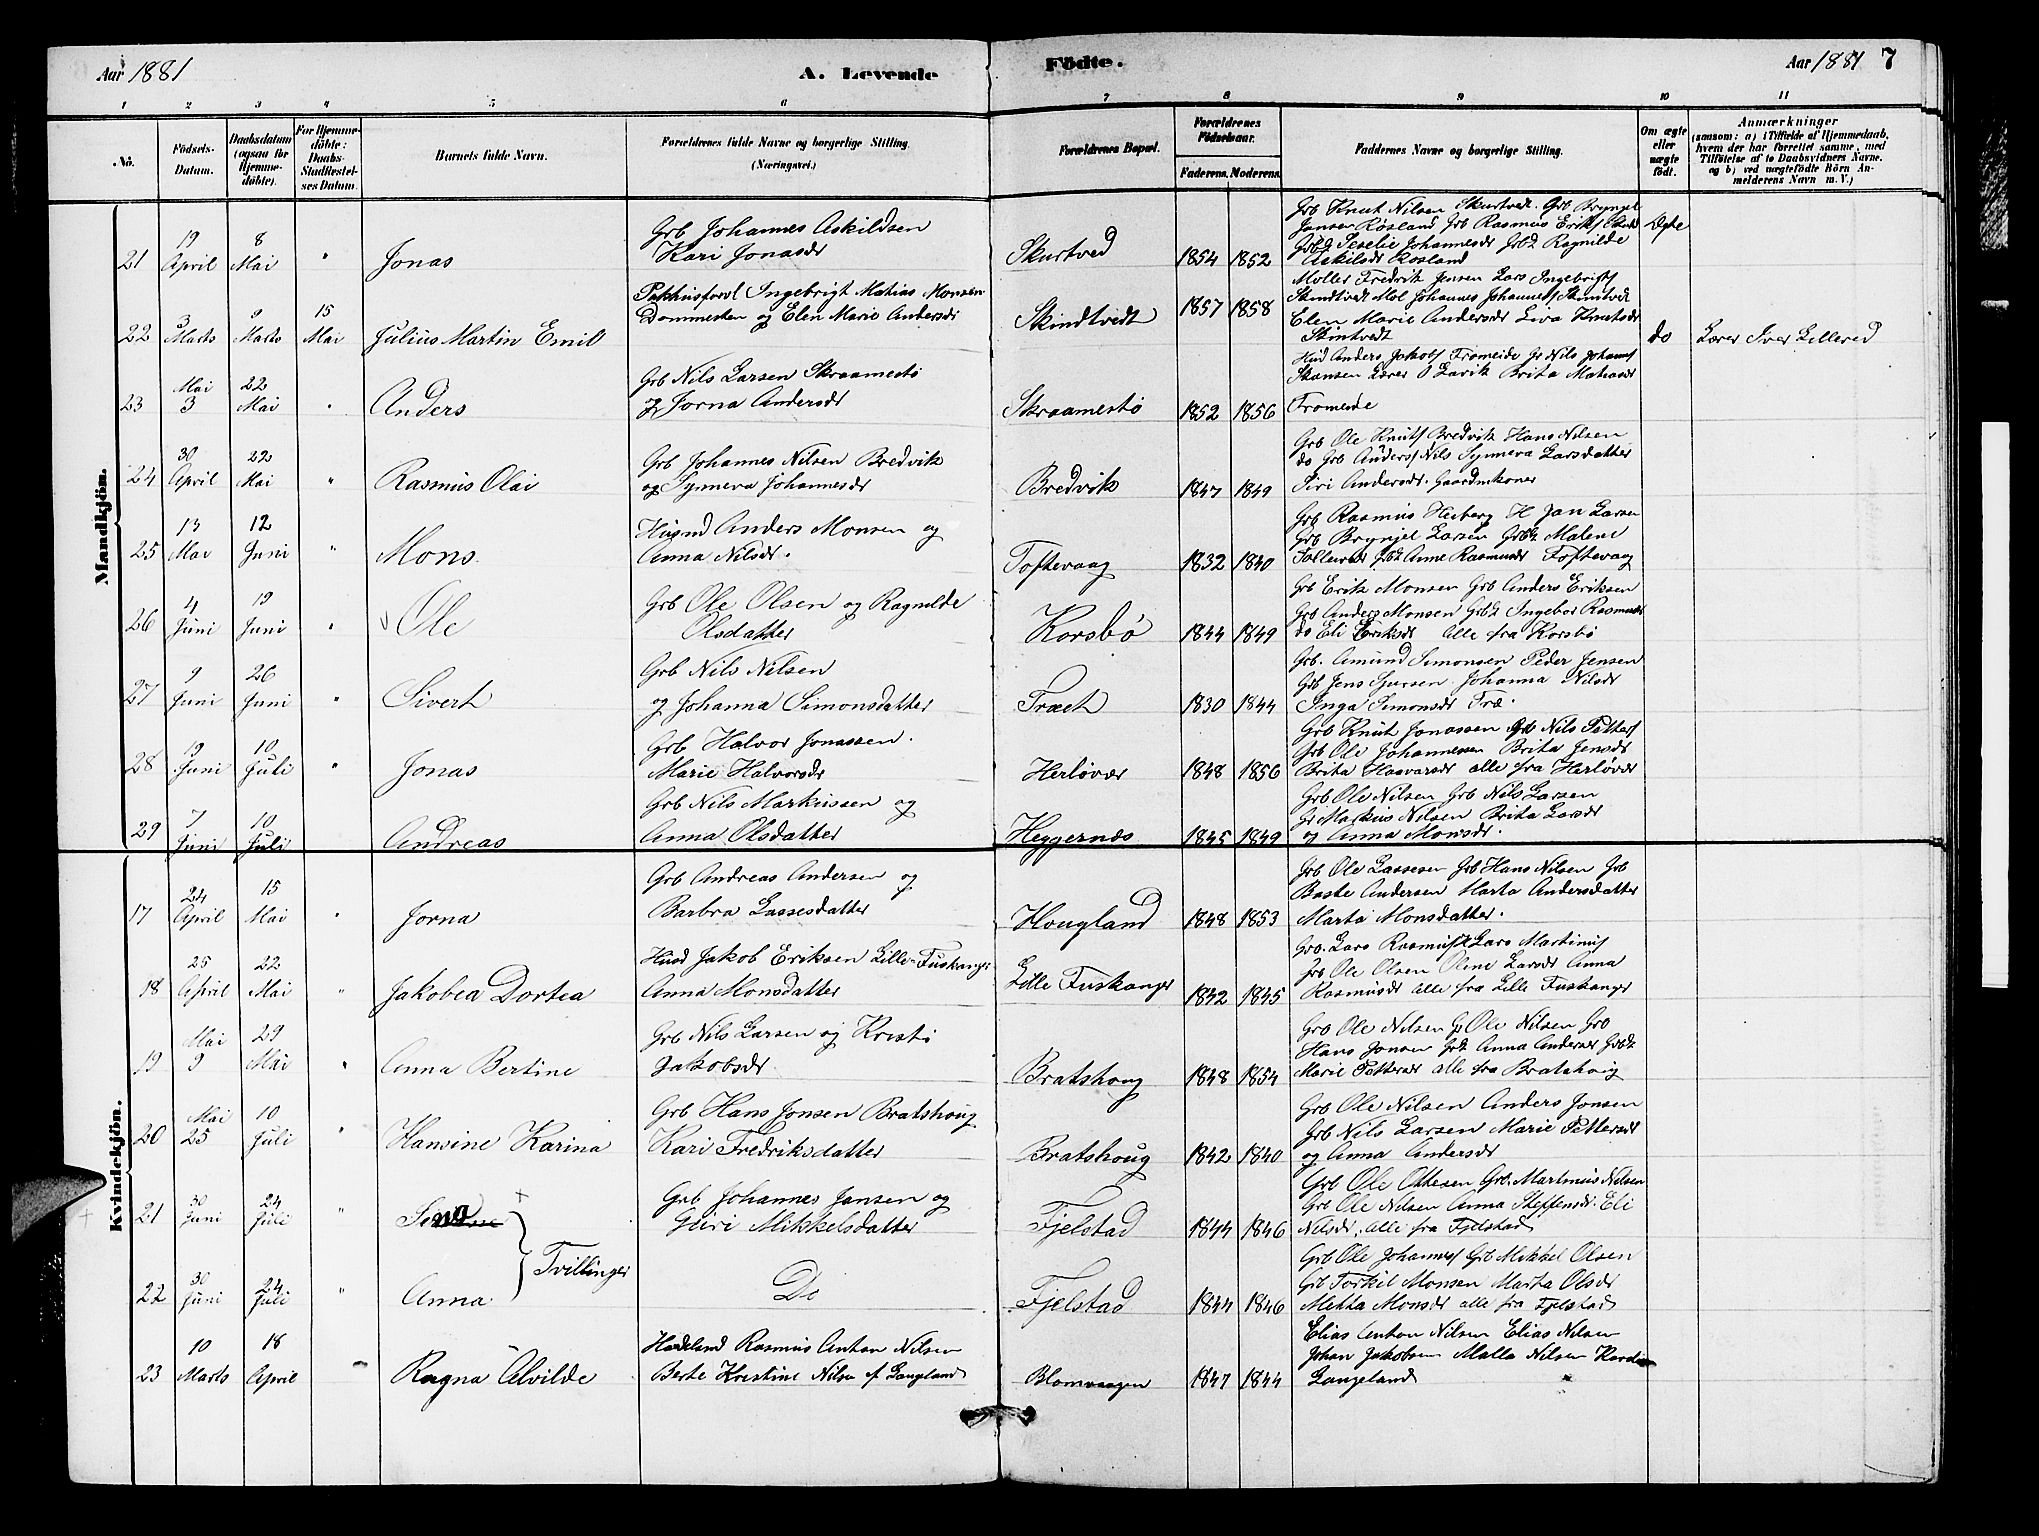 Aar 1881 A. Levende Födte. Aar 1881 7
1 2 3 4 5 6 7 8 9 10 11
No. Födsels-Datum. Daabsdatum (ogsaa for Hjemmedöbte). For Hjemmedöbte: Daabs-Stadfæstelses Datum. Barnets fulde Navn. Forældrenes fulde Navne og borgerlige Stilling. (Næringsvei.) Forældrenes Bopæl. Forældrenes Födselsaar. Faderens. Moderens. Faddernes Navne og borgerlige Stilling. Om ægte eller uægte födt. Anmærkninger (saasom: a) i Tilfælde af Hjemmedaab, hvem der har forrettet samme, med Tilföielse af to Daabsvidners Navne, og b) ved uægtefödte Börn Anmelderens Navn m. V.)
Mandkjön.
21 19 April 8 Mai " Jonas
Grb Johannes Askildsen
Kari Jonasdr
Skurtved 1854 1852
Grb Knut Nilsen Skurtvedt. Grb Brynjel
Jansen Rösland Grb Rasmus Eriks
Johannesdr Ragnilde
Askilsdr Rosland
Ægte
22 3 Marts 9 Marts 15 Mai Julius Martin Emil
Ingebrigt Matias Monsen
Dommesten og Elen Marie Andersdr
Skindtvedt 1857 1858
Möller Fredrik Jensen Lars Ingebrigts
Skindtvedt Johannes Johannes Skintvedt
Elen Marie Andersdr Knutsdr
Skintvedt
do Lærer Iver Lillered
23 Mai 3 22 Mai " Anders
Grb Nils Larsen Skraamestö
og Jorna Andersdr
Skraamestö 1852 1856
Anders Jakobs Fromeide Nils Johans
Skansen Lærer O Larvik Brita Matiasdr
Fromeide
24 30 April 22 Mai " Rasmus Olai
Grb Johannes Nilsen Bredvik
og Synneva Johannesdr
Bredvik 1847 1849
Grb Ole Knuts Bredvik Hans Nilsen
do Grb Anders Nils Synneva Larsdatter
Siri Andersdr. Gaardmkoner
25 13 Mai 12 Juni " Mons.
Husmd Anders Monsen og
Anna Nilsdr.
Toftevaag 1832 1840
Grb Rasmus Heiberg H Jan Larsen
Grb Brynjel Larsen Grbk Malene
Anne Rasmusdr Toftevaag
26 4 Juni 19 Juni " Ole
Grb Ole Olsen og Ragnilde
Olsdatter
Korsbö 1844 1849
Grb Erik Monsen Grb Anders Eriksen
Grb Anders Monsen Grbk Ingebor Rasmusdr
do Eli Eriksdr alle fra Korsbö
27 9 Juni 26 Juni " Sivert
Grb Nils Nilsen
og Johanna Simonsdatter
Træet 1830 1844
Grb. Amund Simonsen Peder Jensen
Grb Jens Sjursen Johanna Nilsdr
Inga Simonsdr Træ.
28 19 Juni 10 Juli " Jonas
Grb Halvor Jonassen.
Marie Halvorsdr
Herlövær 1848 1856
Grb Knut Jonassen Grb Nils Petters
Grb Ole Johannessen Brita Jensdr
Brita Havarsdr alle fra Herlövær
29 7 Juni 10 Juli Andreas
Grb Nils Markussen og
Anna Olsdatter
Heggernæs 1845 1849
Grb Ole Nilsen Grb Nils Larsen
Gr Markus Nilsen Brita Larsdr
og Anna Monsdr.
Kvindekjön.
17 24 April 15 Mai " Jorna
Grb Andreas Andersen og
Barbra Lassesdatter
Hougland 1848 1853
Grb Ole Lassesen Grb Hans Nilsen Grb
Baste Andersen Marta Andersdatter
Marta Monsdatter.
18 25 April 22 Mai " Jakobea Dortea
Husd Jakob Eriksen Lille-Fuskanger
Anna Monsdatter
Lille Fuskanger 1842 1845
Gro. Lars Rasmus Lars Martinus
Ole Olsen Oline Larsdr Anna
Rasmusdr alle fra Lille Fuskanger
19 Mai 9 29 Mai " Anna Bertine
Grb Nils Larsen og Kristi
Jakobsdr.
Bratshoug 1848 1854
Gro Ole Nilsen Gr Ole Nilsen Gro
Hans Jonsen Grbk Anna Andersdr Grbk
Marie Pettersdr alle fra Bratshoug
20 Mai 25 10 Juli " Hansine Karina
Grb Hans Jonsen Bratshoug
Kari Fredriksdatter
Bratshoug 1842 1840
Grb Ole Nilsen Anders Jonsen
Grb Nils Larsen Marie Pettersdr
og Anna Andersdr
21 30 Juni 24 Juli "
Tvillinger
Grb Johannes Jansen og
Guri Mikkelsdatter
Fjelstad 1844 1846
Grb Ole Ottesen Grb. Martinus Nilsen
Grb Ole Nilsen Anna Steffensdr. Eli
Nilsdr. alle fra Fjelstad
22 30 Juni 24 Juli " Anna
Do
Fjelstad 1844 1846
Grb Ole Johannes Grb Mikkel Olsen
Grb Torkil Monsen Marta Olsdr
Metta Monsdr alle fra Fjelstad
23 10 Marts 18 April Ragna Alvilde
Rasmus Anton Nilsen
Berte Kristine Nilsen f Langeland
Blomvaagen 1847 1844
Elias Anton Nilsen Elias Nilsen
Johan Jakobsen Malla Nilsen
Langeland